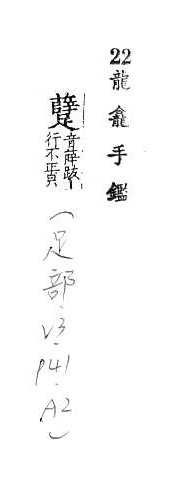 22龍龕手鑑
躠
音薛跋丨
行不正皃
(足部.V3.P41.A2)